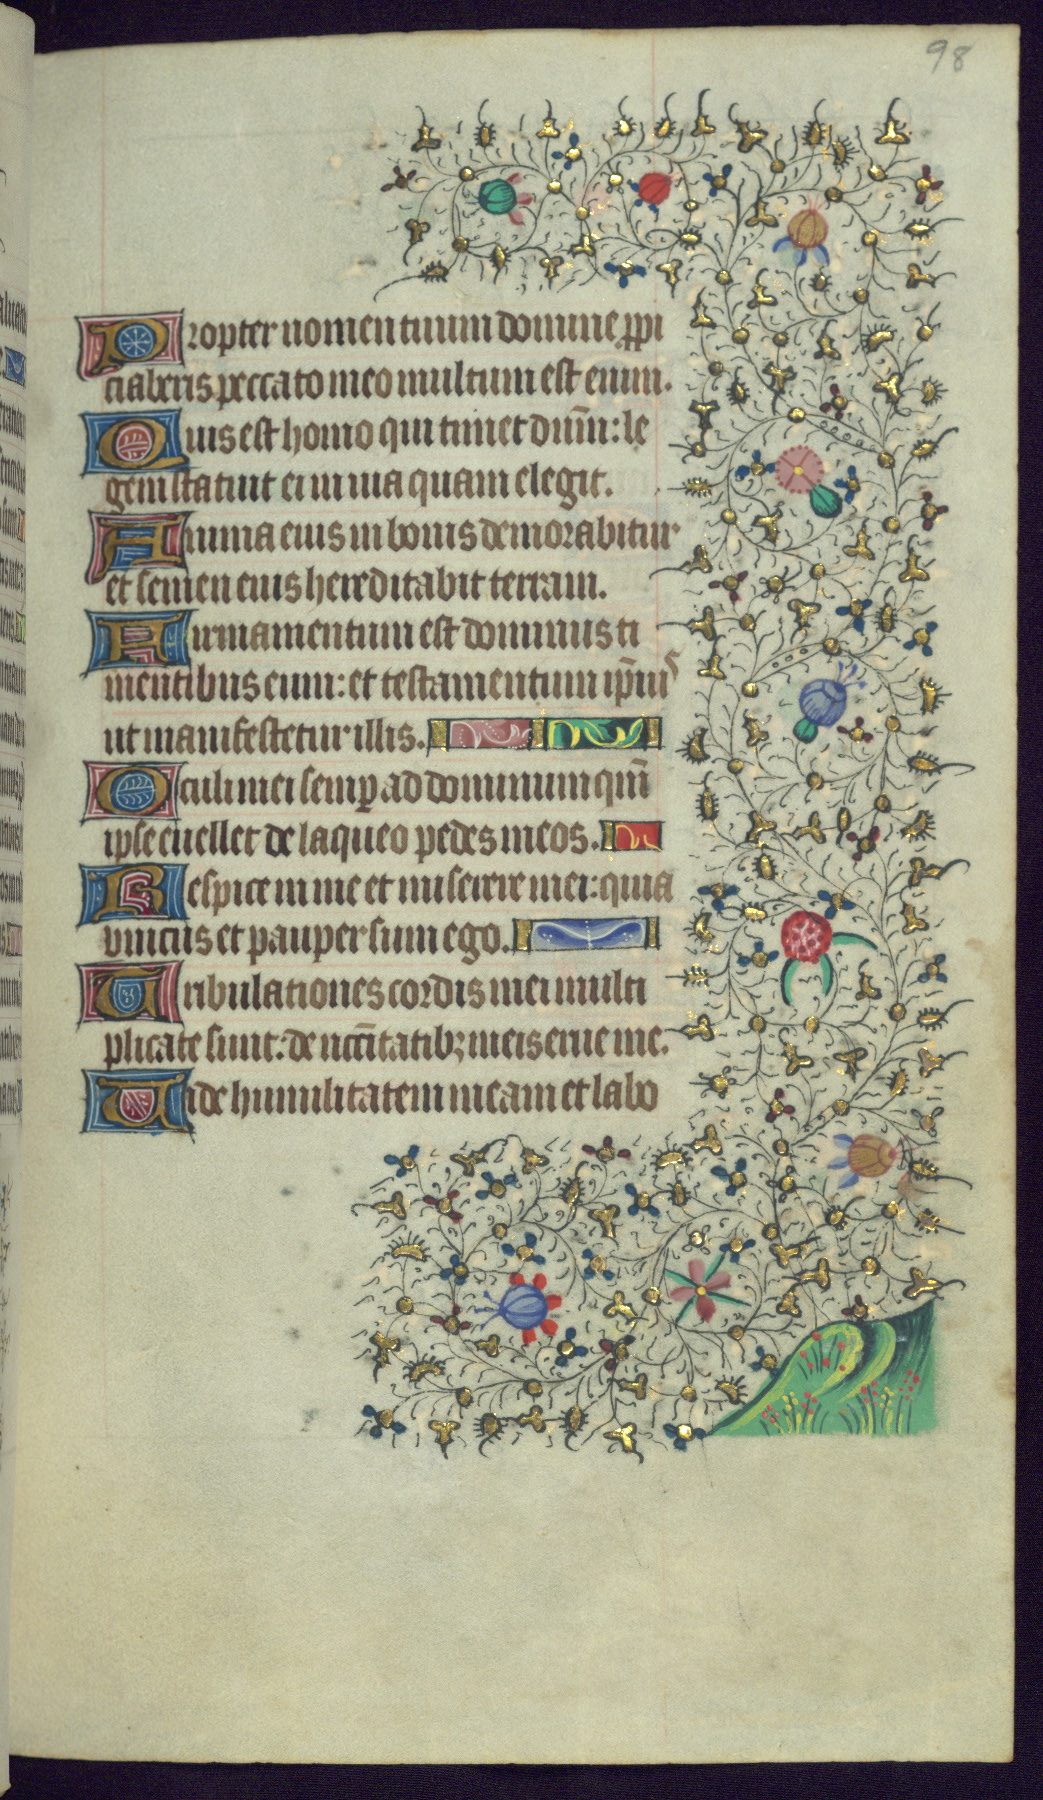 98
Propter nomen tuum domine ꝓpi
ciaberis peccato meo multum est enim.
Quis est homo qui timet dñm: le
gem statuit ei in uia quam elegit.
Anima eius in bonis demorabitur
et semen eius hereditabit terram.
Firmamentum est dominus ti
mentibus eum: et testamentum ip̄iuˢ
ut manifestetur illis.
Oculi mei semꝑ ad dominum qm̄
ipse euellet de laqueo pedes meos.
Respice in me et miserere mei: quia
vnicus et pauper sum ego.
Tribulationes cordis mei multi
plicate sunt: de nccītatibꝫ meis erue me.
Uide humilitatem meam et labo